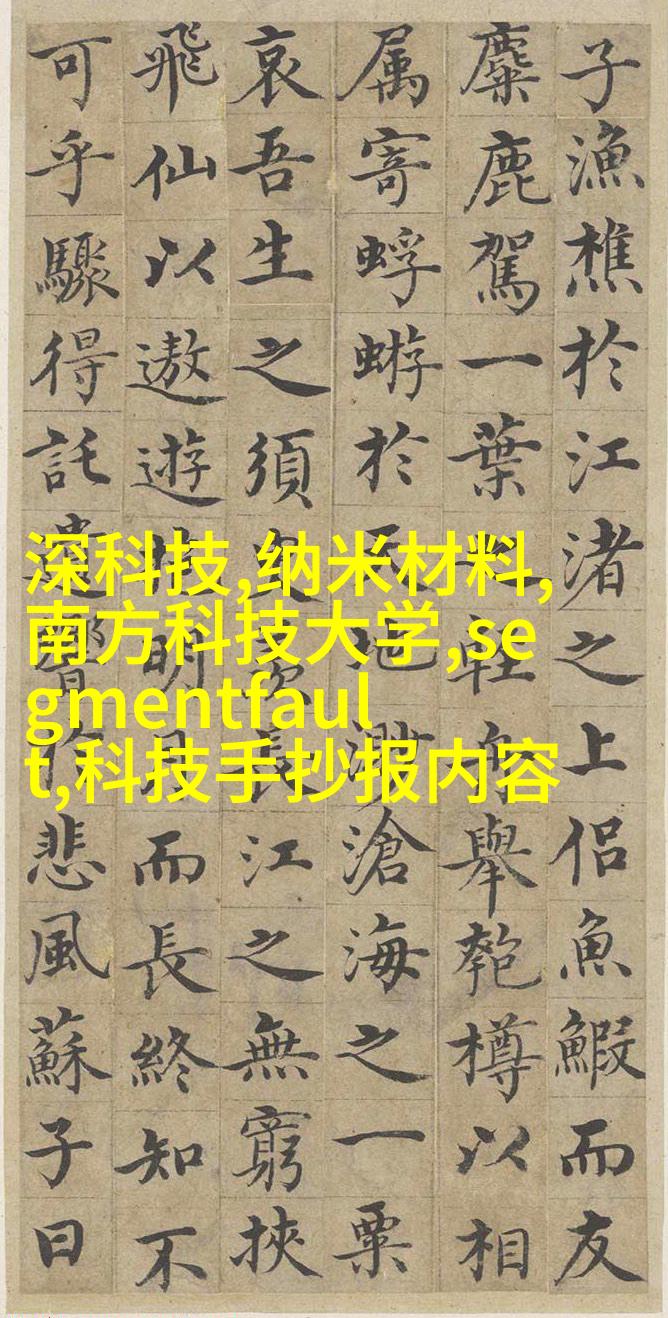 子漁樵於江渚之上侶魚鰕而友
麋鹿駕一葉之輕舟舉匏樽以相
属寄蜉蝣於天地渺滄海之一粟
哀吾生之須臾羨長江之無窮挾
飛仙以遨遊抱明月而長終知不
可乎驟得託遺響於悲風蘇子曰
深科技,纳米材料,
南方科技大学,se
gmentfaul
t,科技手抄报内容